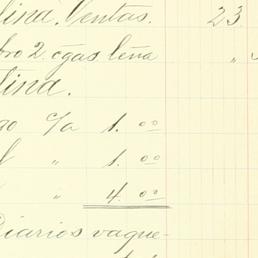 lina. Ventas. 23
bro 2 cgas leña "
tina.
go c/a 1.00
" 1.00
" 4.00
Diarios vaque-